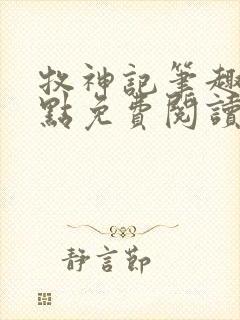 牧神記筆趣
點免費閱讀
静言節